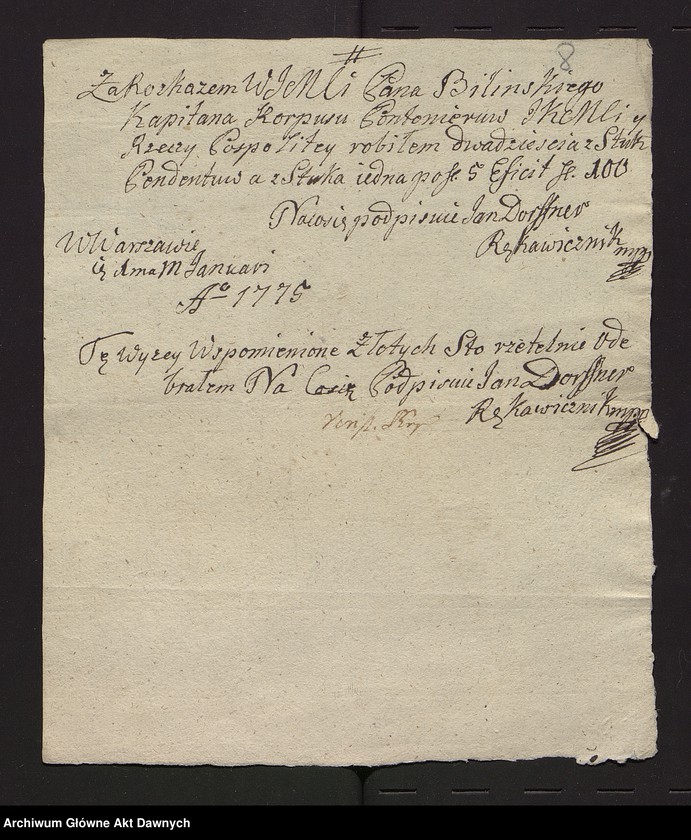 8
Za Rozkazem WJMCi Pana Bilinskiego
Kapitana Korpusu Pontonieruw JKMCi y
Rzeczy Pospolitey robiłem dwadziescia z Sztuk
Pendentuw a z Sztuka iedna po fl. 5 Efficit fl. 100
Na co się podpisuie Jan Dorffner
Rękawicznik mpp
W Warszawie
Januari
Ao 1775
Tę wyzey Wspomienione Złotych Sto rzetelnie Ode
brałem Na Co się Podpisuie Jan Dorffner
Rękawicznik mpp
Archiwum Główne Akt Dawnych